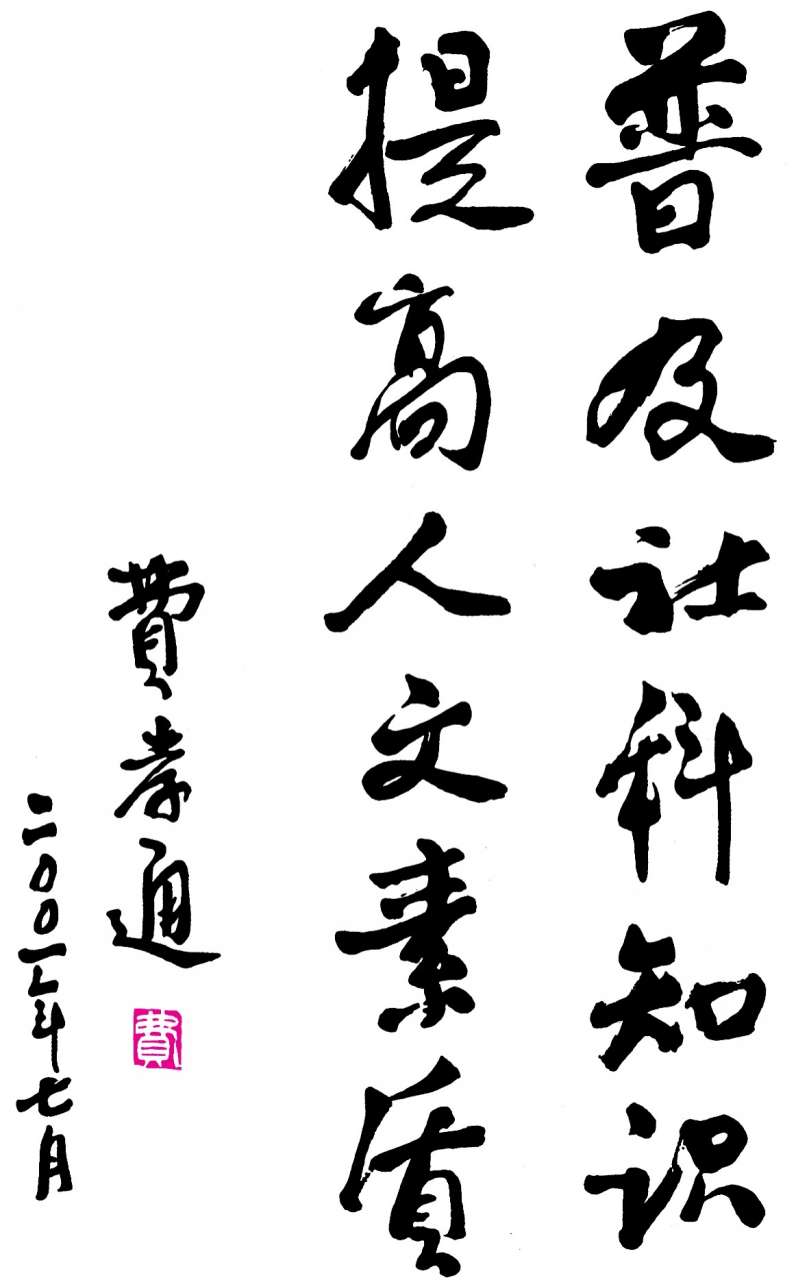 普及社科知识
提高人文素质
費孝通
二〇〇一年七月
費